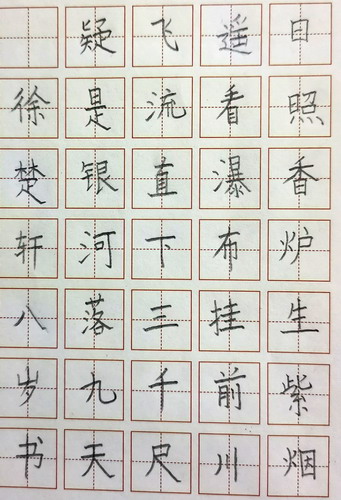 日照香炉生紫烟
遥看瀑布挂前川
飞流直下三千尺
疑是银河落九天
徐楚轩八岁书